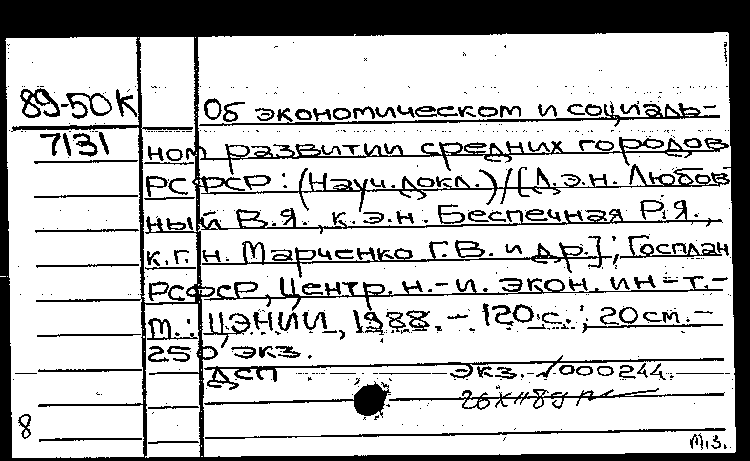 89-50К
7131
Об экономическом и социаль-
ном развитии средних городов
РСФСР: (Науч. докл.)/[Д.э.н. Любов
ный В.Я., к.э.н. Беспечная Р.Я.,
к.г.н. Марченко Г.В. и др.]; Госплан
РСФСР, Центр. н.-и. экон. ин-т.-
М.: ЦЭНИИ, 1988. - 120 с.; 20 см.-
250 экз.
ДСП экз. №000244.
8
М.З.